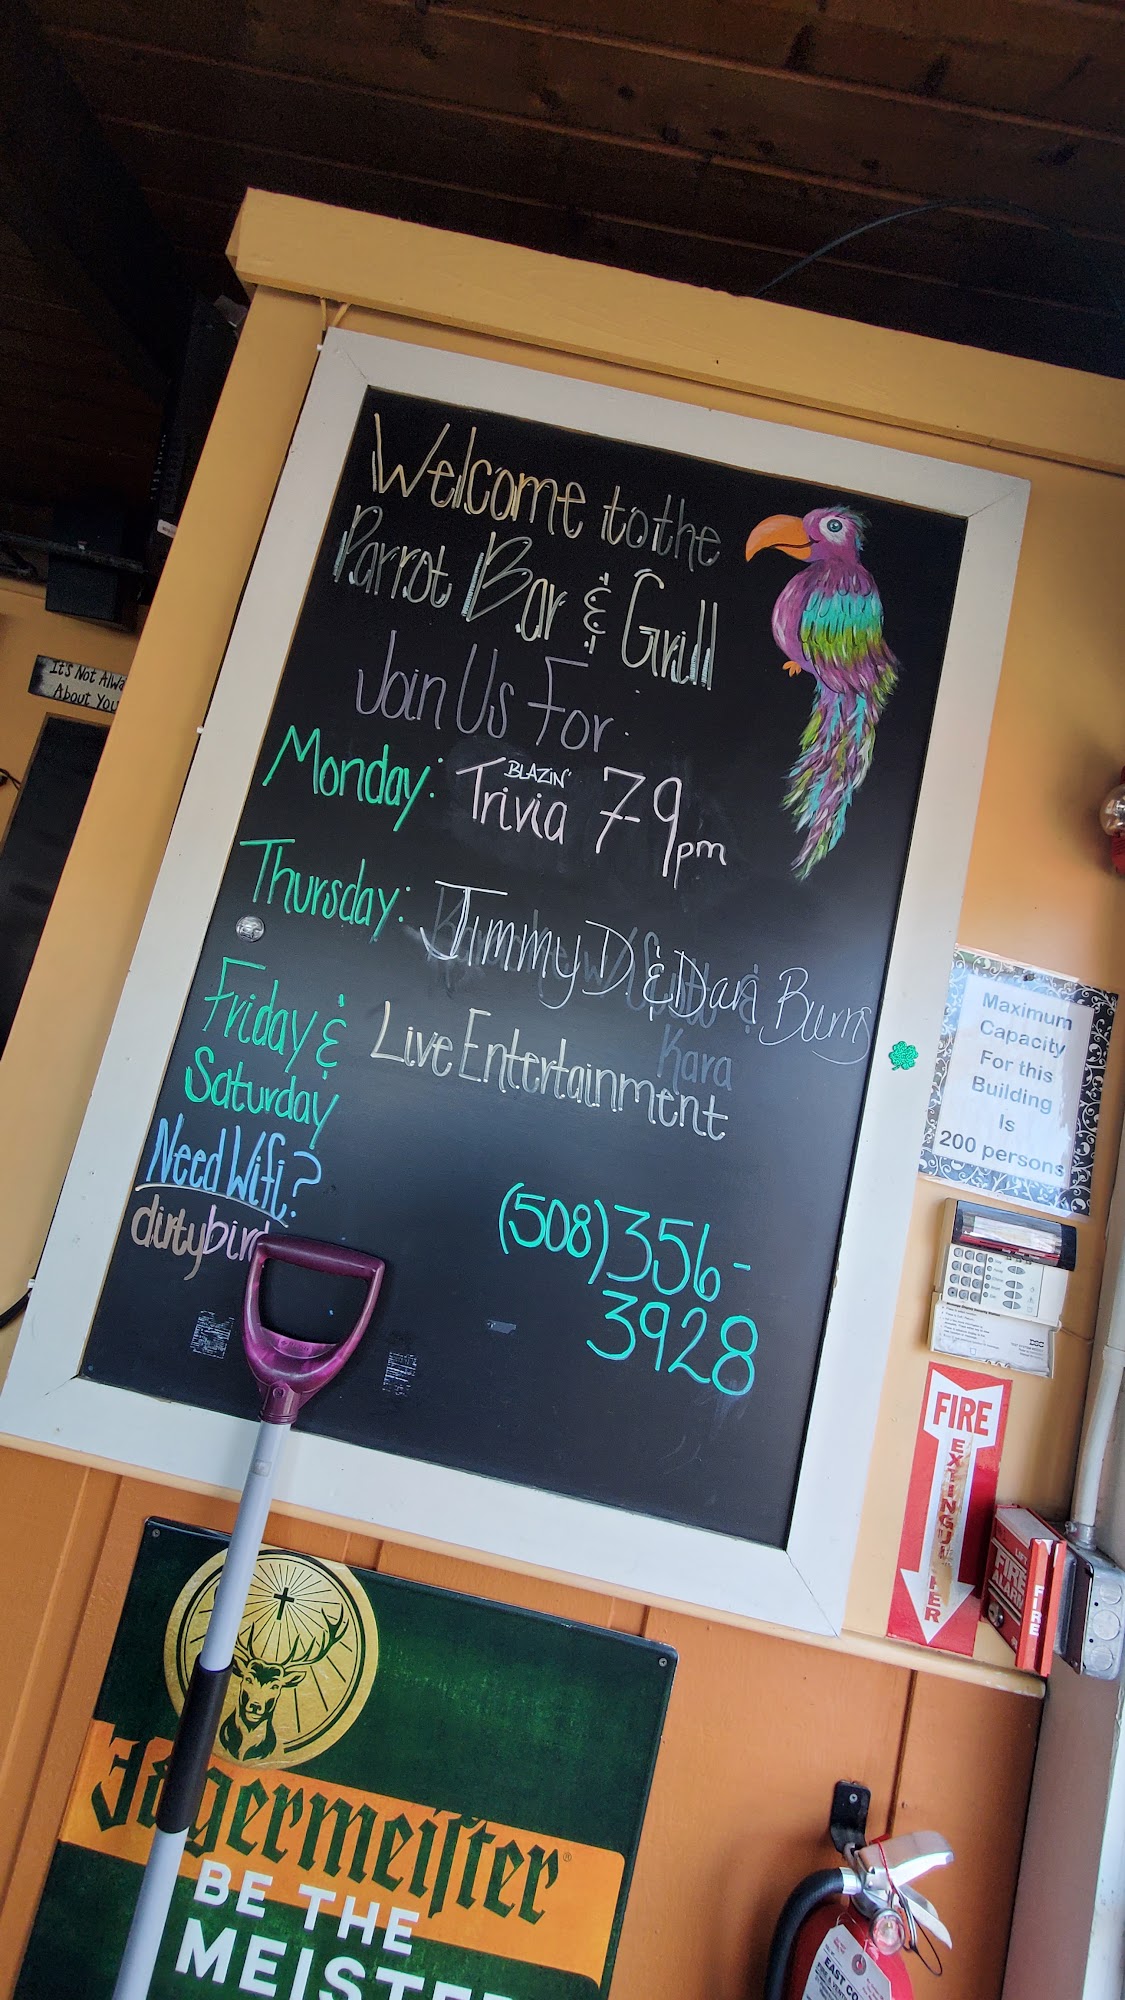 Welcome to the
Parrot Bar & Grill
Join Us For
Monday: BLAZIN' Trivia 7-9pm
Thursday: Jimmy D & Dan Burns
Kara
Friday & Saturday
Live Entertainment
Need Wifi?
dirtybird
(508)356-
3928
It's Not Alwa
About You
Maximum
Capacity
For this
Building
Is
200 persons
FIRE
EXTINGUISHER
FIRE
ALARM
FIRE
Jägermeister
BE THE
MEISTE
EAST CO
FIRE